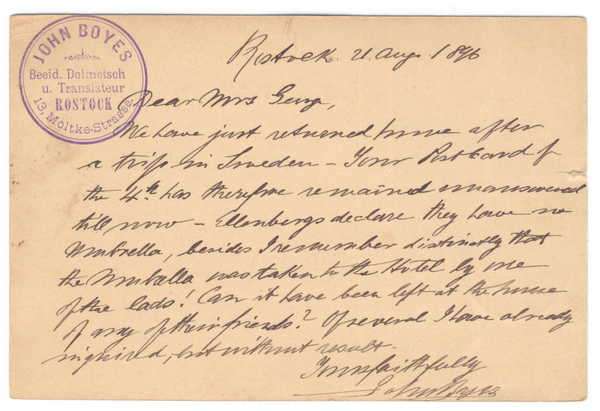 JOHN BOYES
Beeid. Dolmetsch
u. Translateur
ROSTOCK
13, Moltke-Strasse
Rostock 21 Aug. 1896
Dear Mrs
We have just returned home after
a trip in Sweden – Your Postcard of
the 4th has therefore remained unanswered
till now – Ellenbergs declare they have no
Umbrella, besides I remember distinctly that
the Umbrella was taken to the Hotel by one
of the lads! Can it have been left at the house
of any of their friends? Of several I have already
inquired, but without result.
Yours faithfully
John Boyes